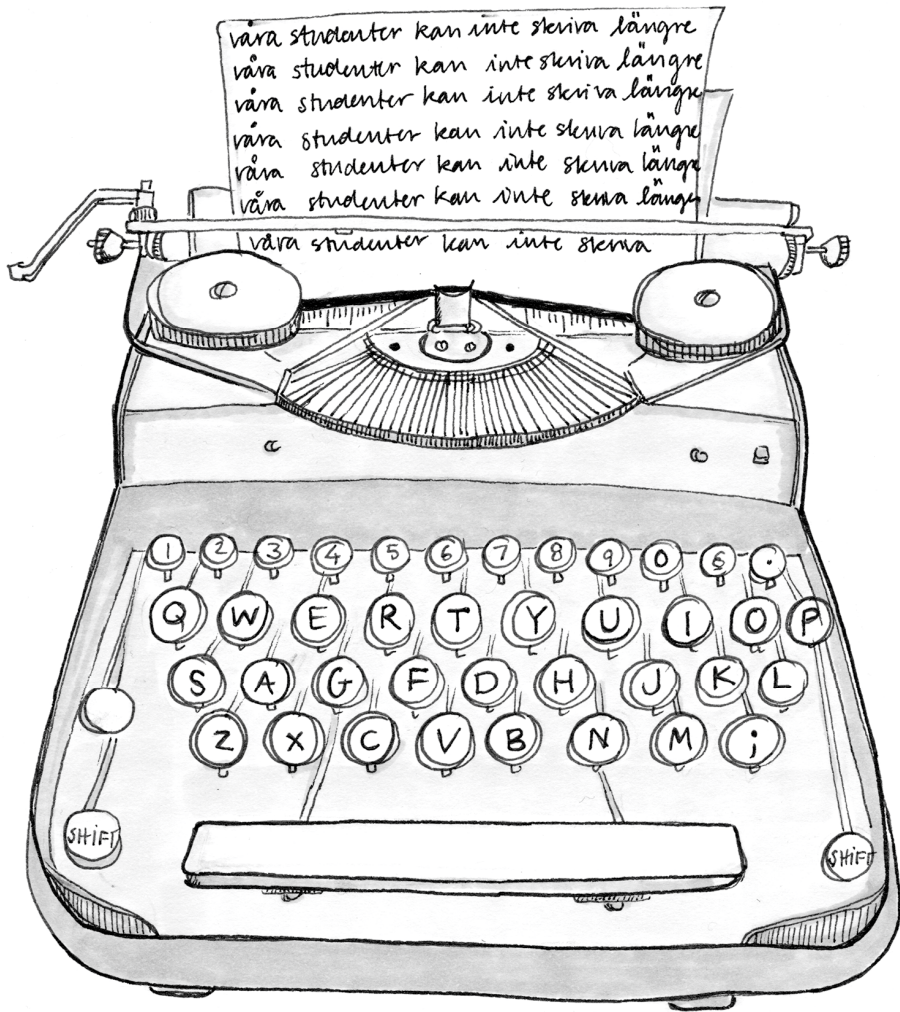 våra studenter kan inte skriva längre
våra studenter kan inte skriva längre
våra studenter kan inte skriva längre
våra studenter kan inte skriva längre
våra studenter kan inte skriva längre
våra studenter kan inte skriva längre
våra studenter kan inte skriva
1 2 3 4 5 6 7 8 9 0
Q W E R T Y U I O P
S A G F D H J K L
Z X C V B N M ;
SHIFT SHIFT